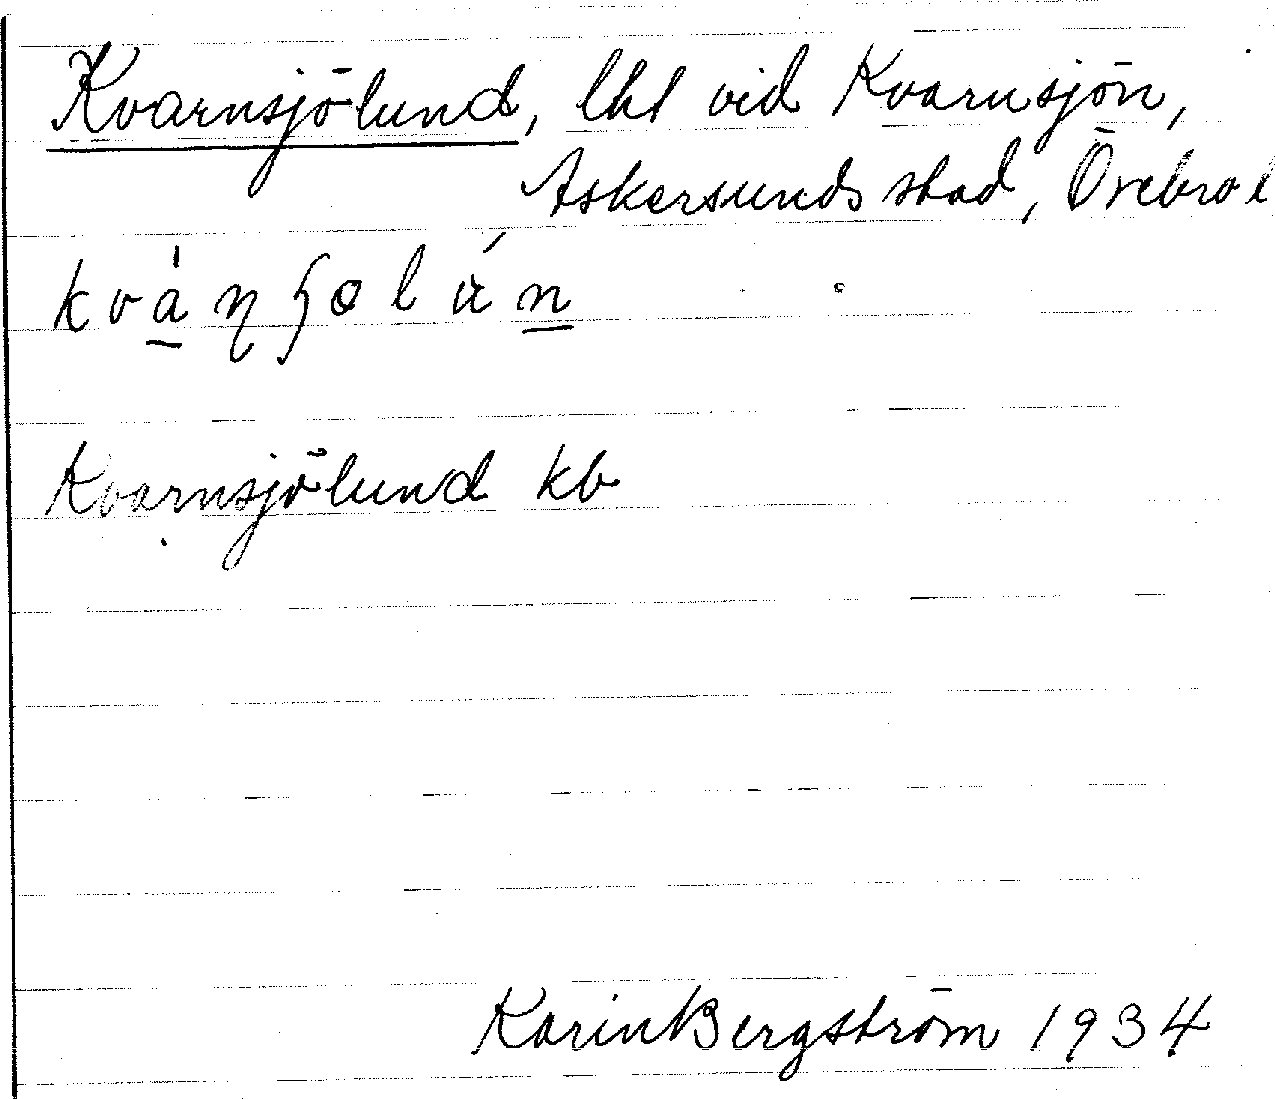 Kvarnsjölund, lht vid Kvarnsjön,
Askersunds stad, Örebro l
Kvarnsjölund kb
Karin Bergström 1934